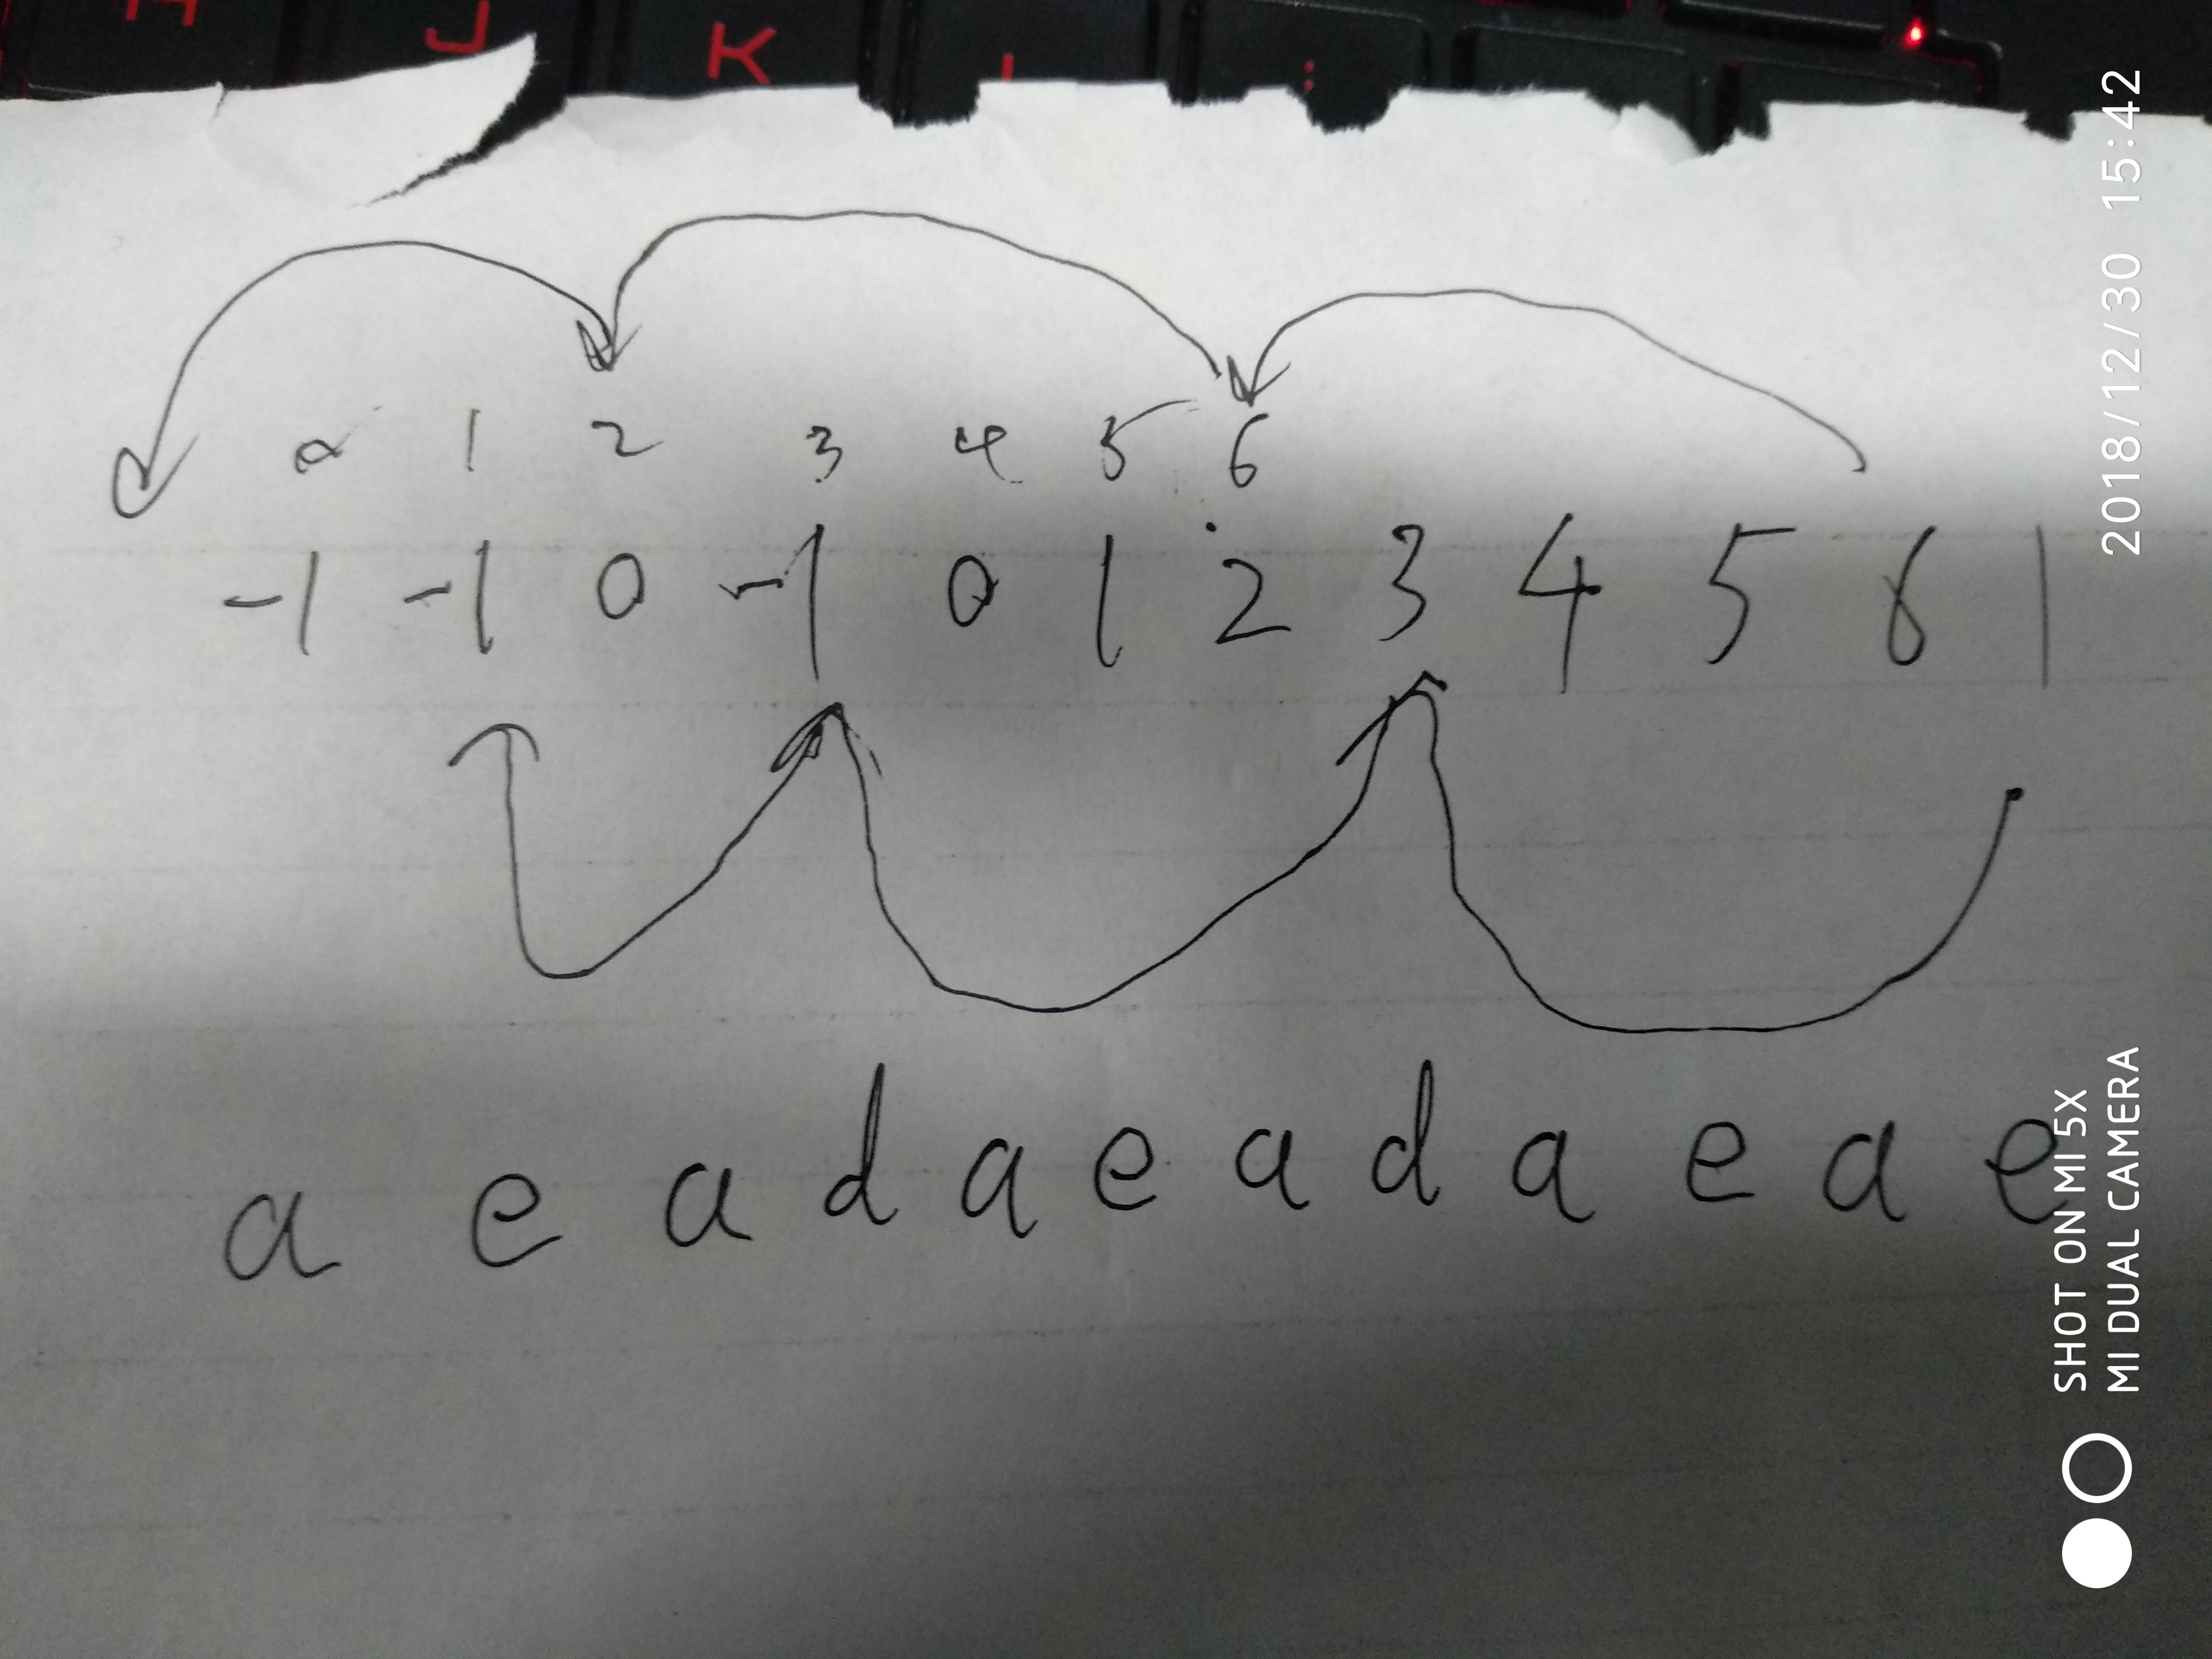 0 1 2 3 4 5 6
-1 -1 0 -1 0 1 2 3 4 5 6 1
a e a d a e a d a e a e
H
J
K
L
SHOT ON MI 5X
MI DUAL CAMERA
2018/12/30 15:42